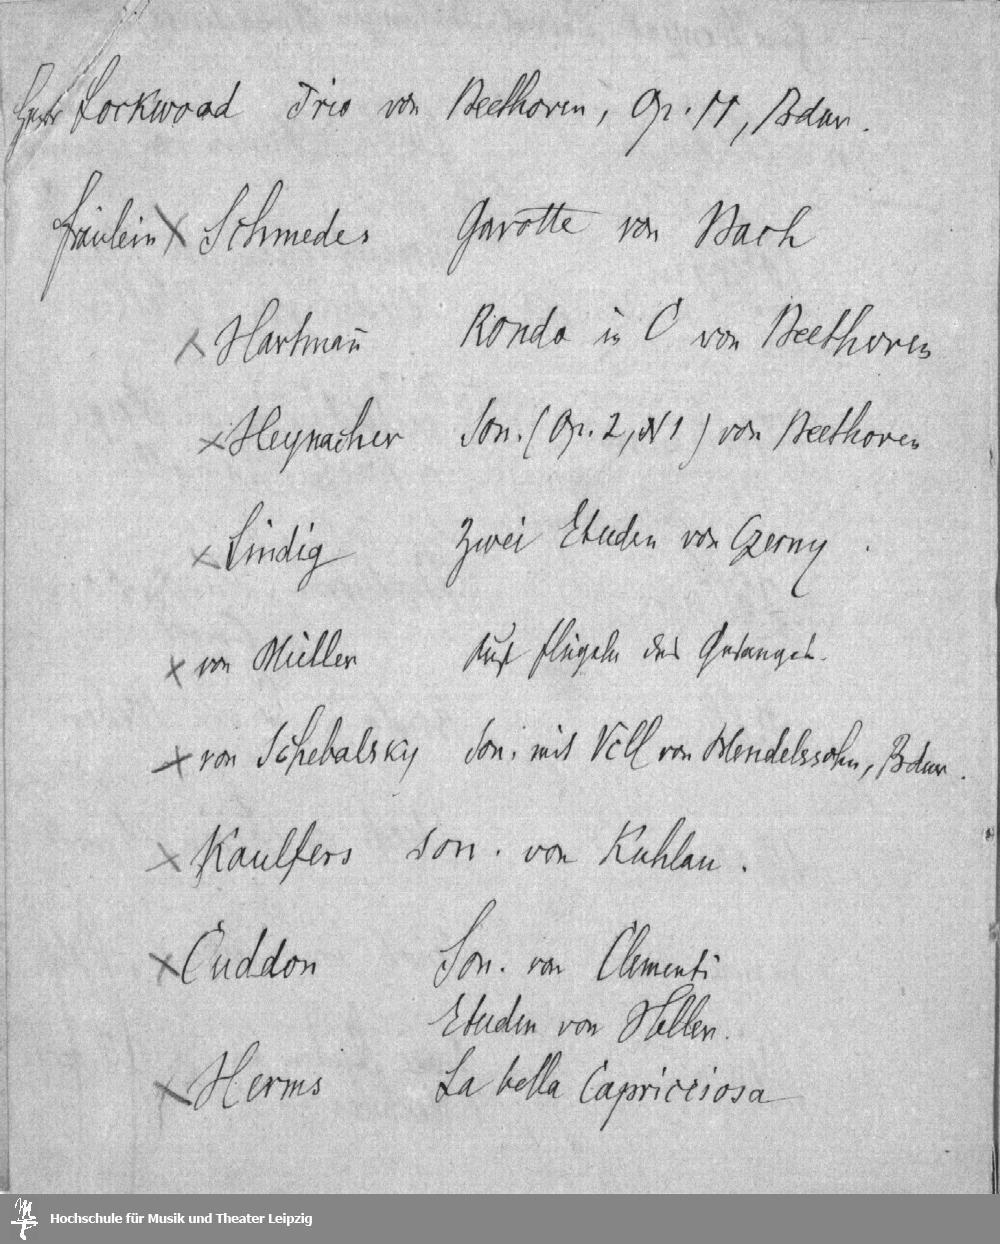 Herr Lockwood Trio von Beethoven, Op. 11, Bdur.
Fräulein Schmedes Gavotte von Bach
Hartman̄ Rondo in C von Beethoven
Heynacher Son. (Op. 2, № 1) von Beethoven
Lindig Zwei Etuden von Czerny.
von Müller Auf Flügeln des Gesanges.
von Schebalsky Son. mit Vcll von Mendelssohn, Bdur.
Kaulfers Son. von Kuhlau.
Cuddon Son. von Clementi
Etuden von Heller.
Herms La bella Capricciosa
Hochschule für Musik und Theater Leipzig